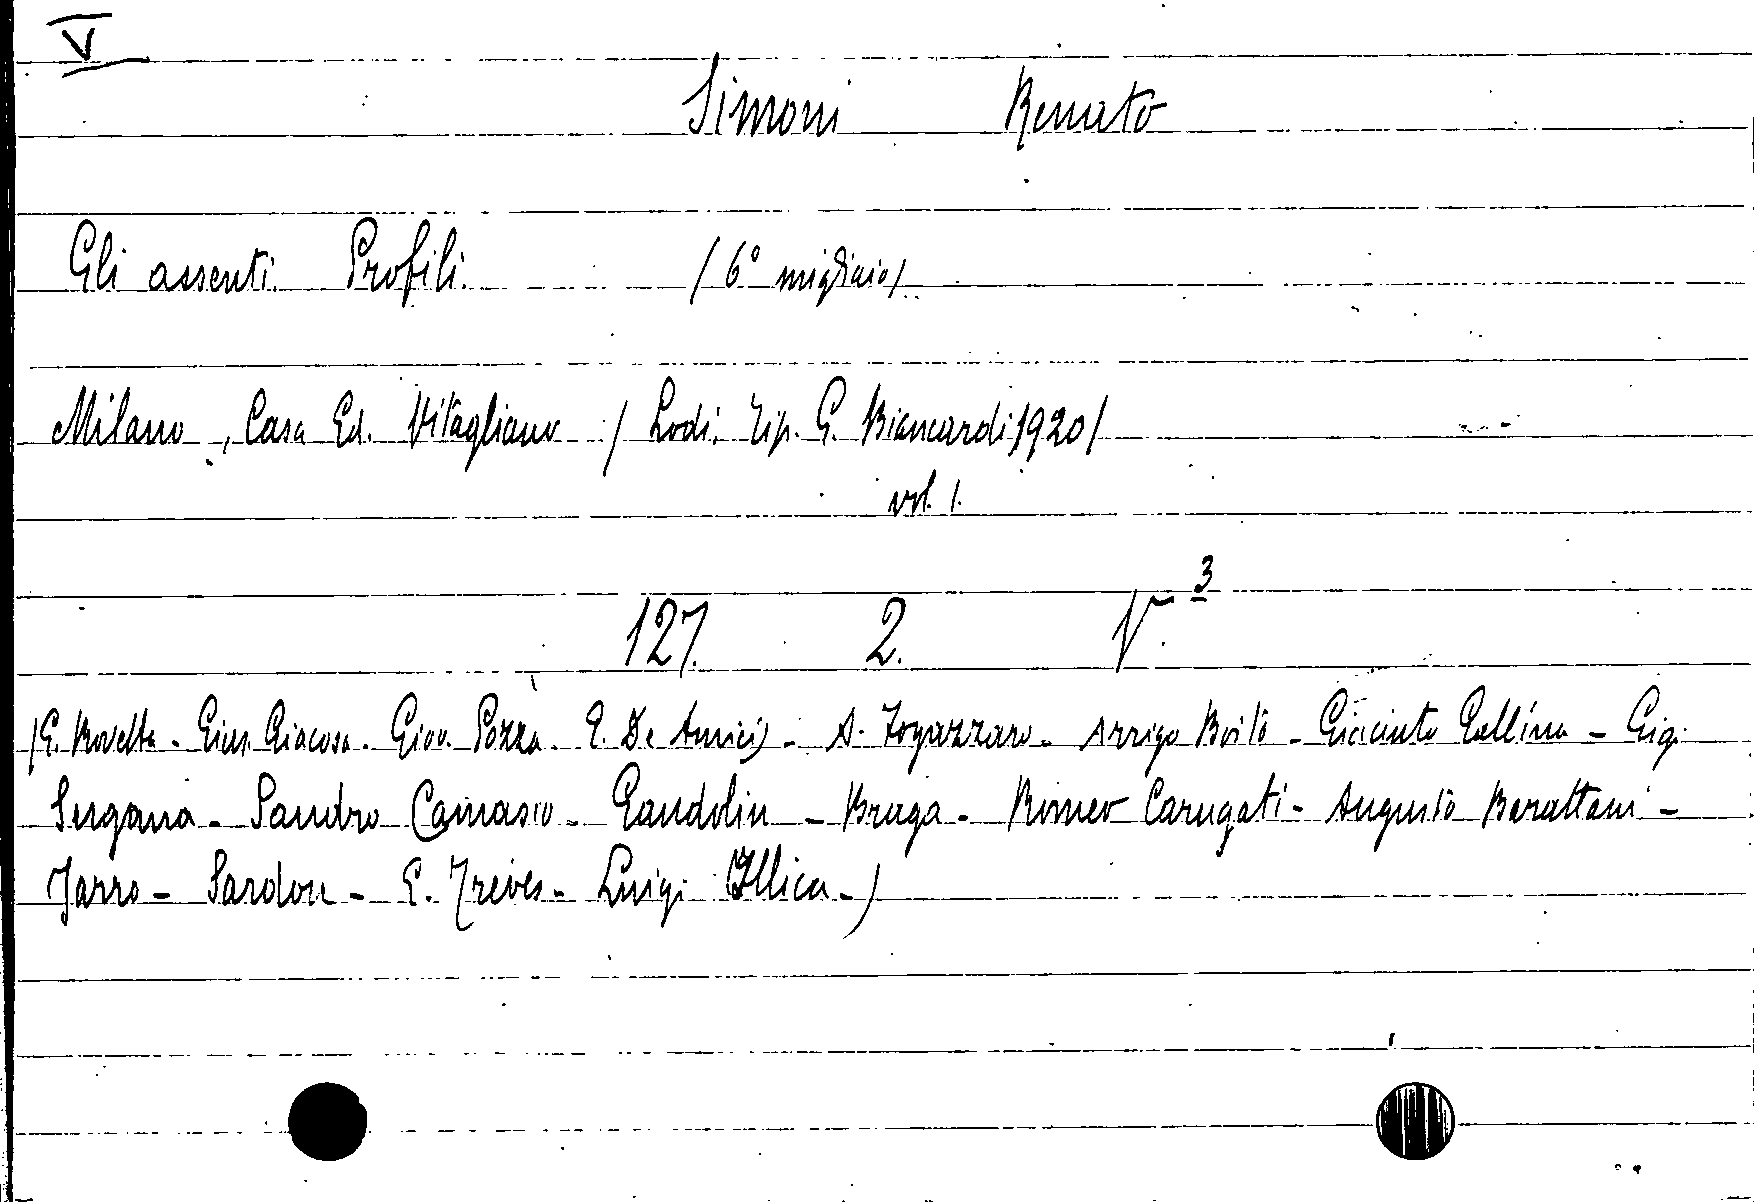 V
Simoni Renato
Gli assenti. Profili. (6° migliaio)
Milano, Casa Ed. Vitagliano (Lodi, Tip. G. Biancardi 1920)
vol. 1.
127. 2. V.3
(G. Rovetta - Gius. Giacosa - Giov. Pozza - E. De Amicis - A. Fogazzaro - Arrigo Boito - Giacinto Gallina - Gig.
Sugana - Sandro Camasio - Gandolin - Braga - Romeo Carugati - Augusto Barattani -
Jarro - Sardou - E. Treves - Luigi Illica -)